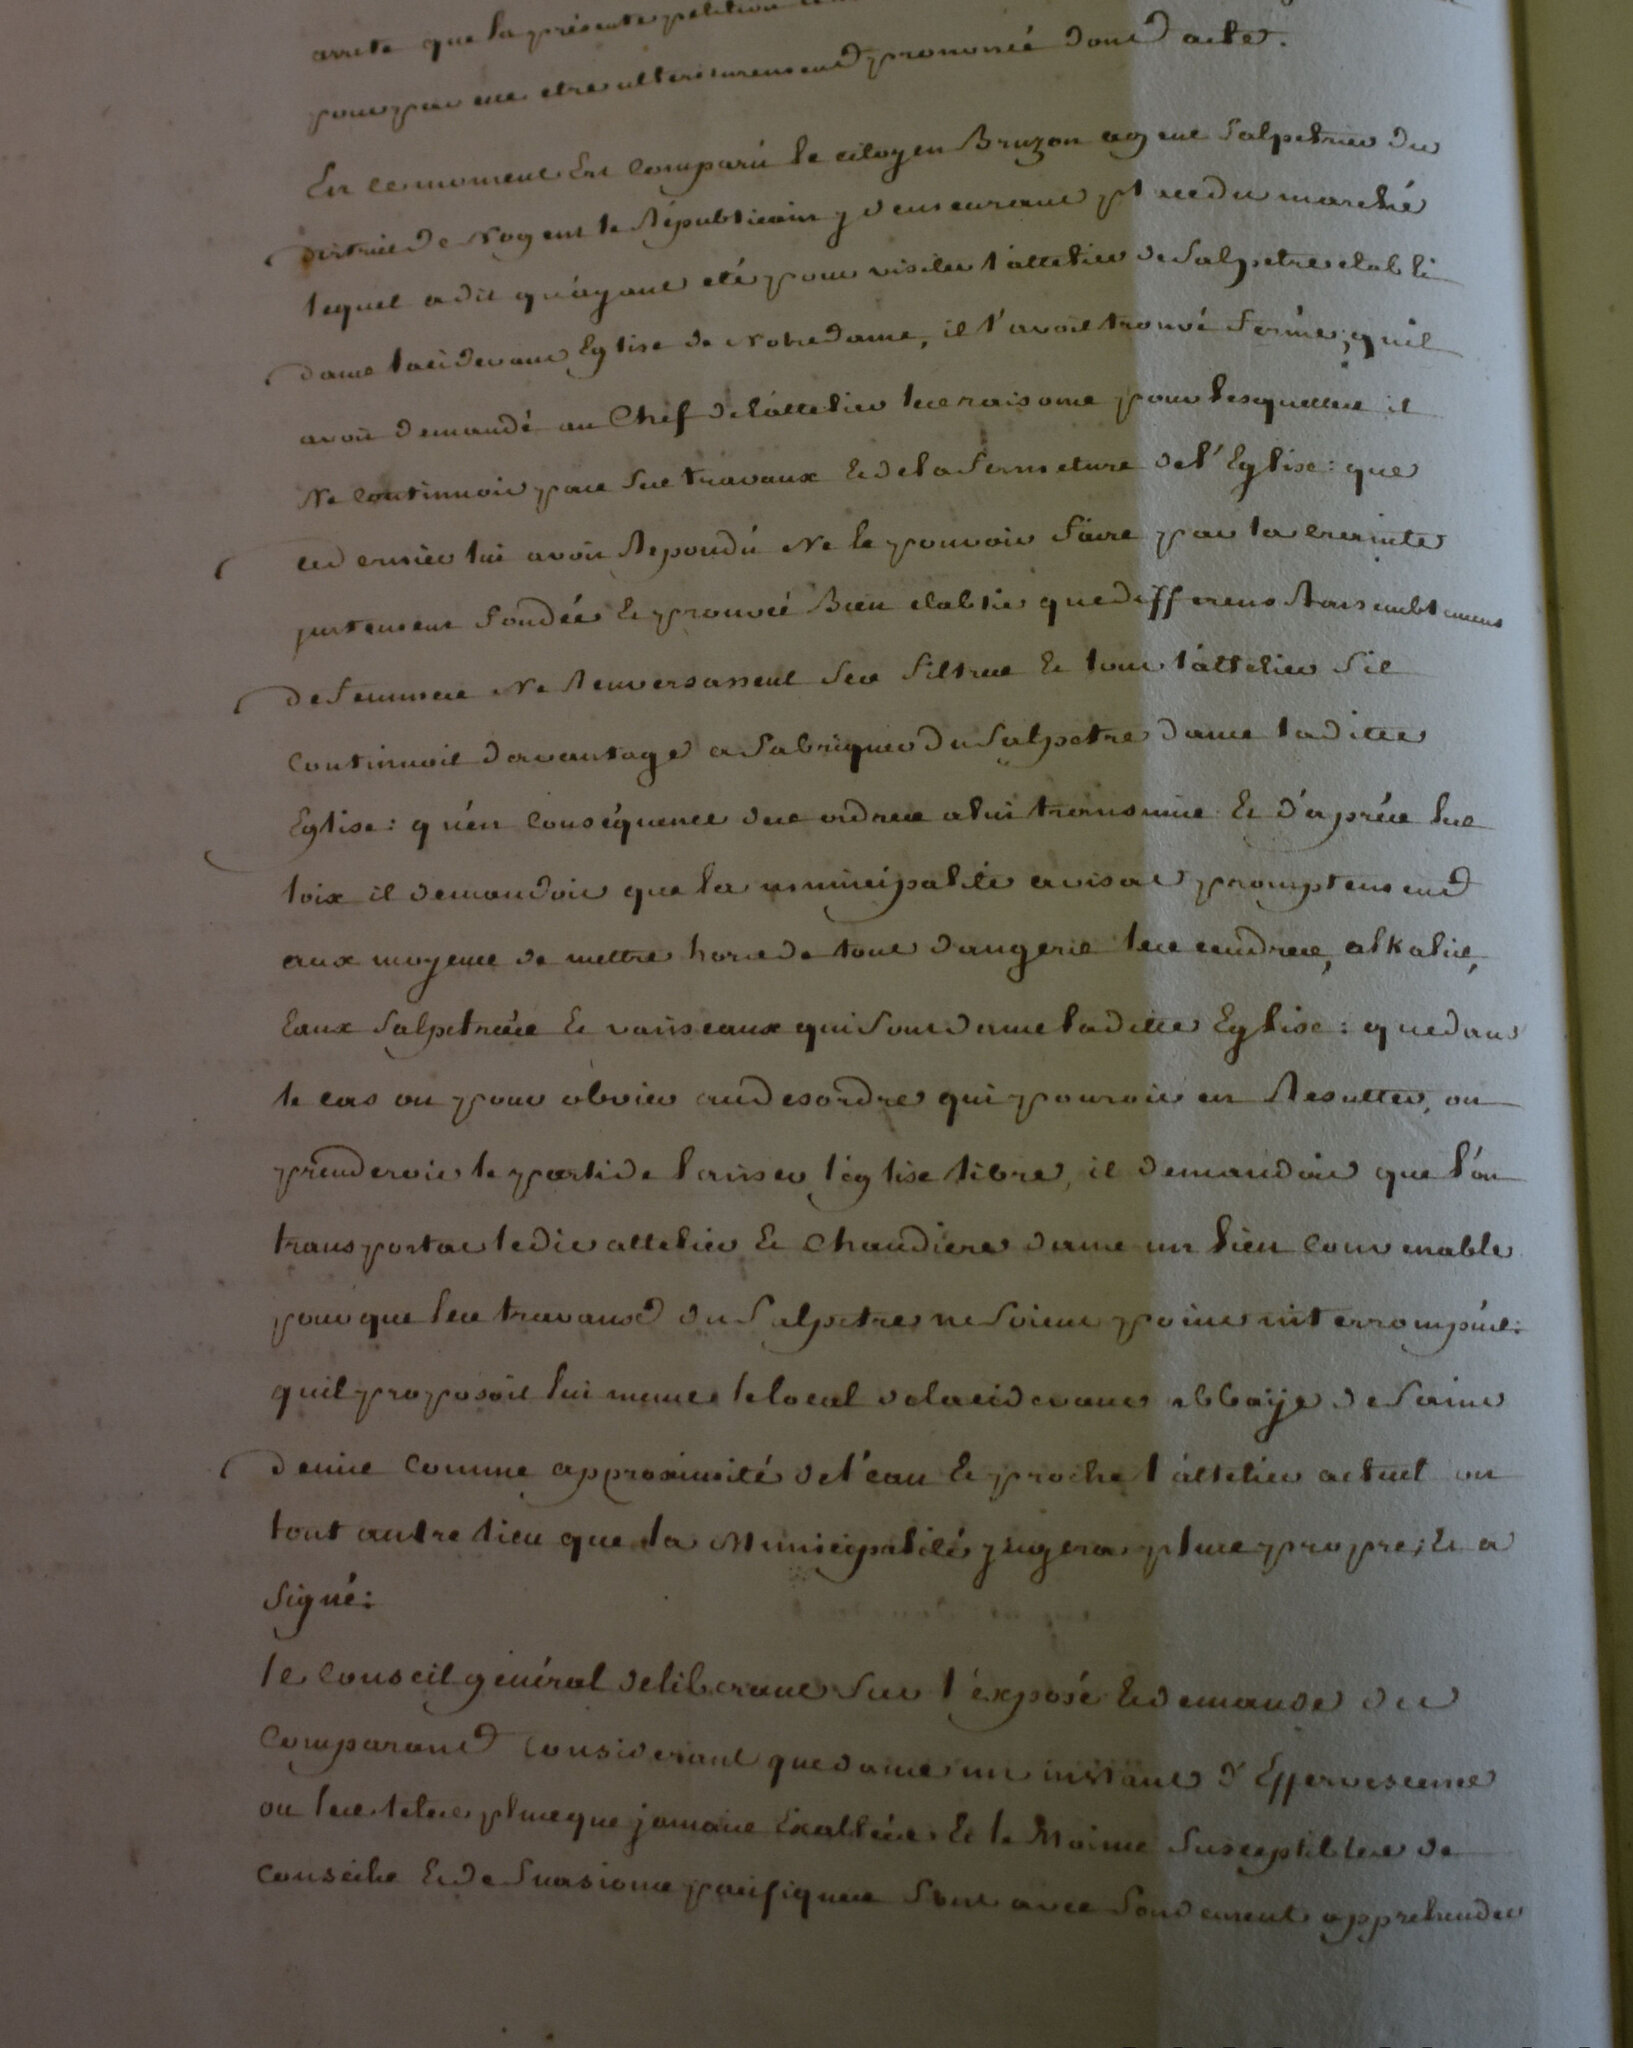 arrete que la présente petition
pour par eux etre ulterieurement prononcé dont acte.
En ce moment Est Comparu le citoyen Bruzon agent Salpetrier du
district de Nogent le Républicain y demeurant place du marché
lequel a dit qu'ayant eté pour visiter l'attelier de Salpetre etabli
dans la ci devant Eglise de Notre dame, il l'avoit trouvé fermé; qu'il
avoit demandé au Chef de l'attelier les raisons pour lesquelles il
Ne Continuoit pas Ses travaux Et de la fermeture de l'Eglise : que
ce dernier lui avoit Repondu Ne le pouvoir faire par la crainte
justement fondée Et prouvée Bien etablie que differens Rassemblemens
de femmes Ne Renversassent Ses filtres Et tout l'attelier S'il
Continuoit davantage a fabriquer du Salpetre dans ladite
Eglise : qu'en Conséquence des ordres a lui transmis Et d'après les
loix il demandoit que la municipalité avisat promptement
aux moyens de mettre hors de tout danger les cendres, alkalis,
Eaux Salpetrées Et vaisseaux qui Sont dans ladite Eglise : que dans
le cas ou pour obvier au desordre qui pouroit en Resulter, on
prenderoit le parti de laisser l'église libre, il demandoit que l'on
transportat ledit attelier Et Chaudiere dans un lieu Convenable
pour que les travaux du Salpetre ne Soient point interrompus :
qu'il proposoit lui meme le local de la ci devant abbaÿe de Saint
denis Comme approximité de l'eau Et proche l'attelier actuel ou
tout autre lieu que la Municipalité jugera plus propre; Et a
Signé :
le Conseil général deliberant Sur l'éxposé Et demande du
Comparant Considerant que dans un instant d'Effervescence
ou les tetes plus que jamais Exaltées Et le Moins Susceptibles de
Conseils Et de Suasions pacifiques Sont avec fondement apprehender